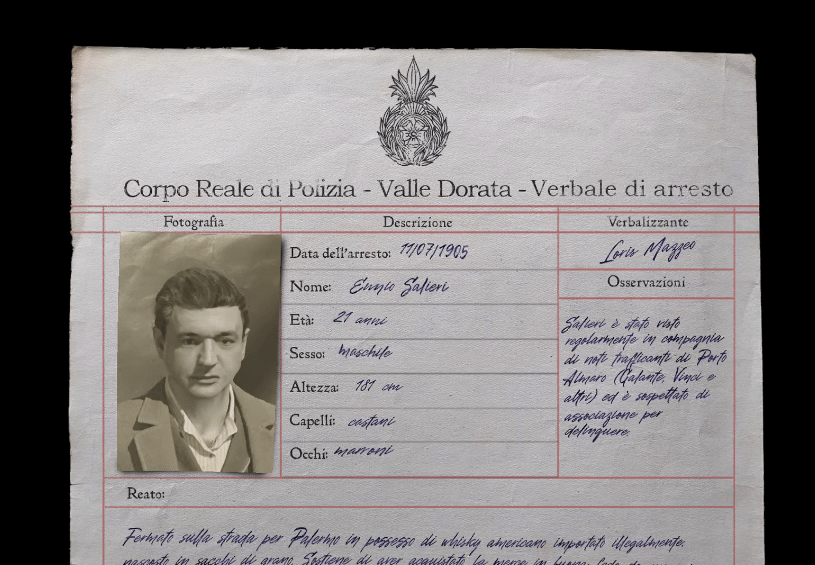 Corpo Reale di Polizia - Valle Dorata - Verbale di arresto
Fotografia
Descrizione
Verbalizzante
Data dell'arresto: 11/07/1905
Nome: Ennio Salieri
Età: 21 anni
Sesso: maschile
Altezza: 181 cm
Capelli: castani
Occhi: marroni
Loris Mazzeo
Osservazioni
Salieri è stato visto
regolarmente in compagnia
di noti trafficanti di Porto
Almaro (Galante, Vinci e
altri) ed è sospettato di
associazione per
delinquere.
Reato:
Fermato sulla strada per Palermo in possesso di whisky americano importato illegalmente,
nascosto in sacchi di grano. Sostiene di aver acquistato la merce in buona fede